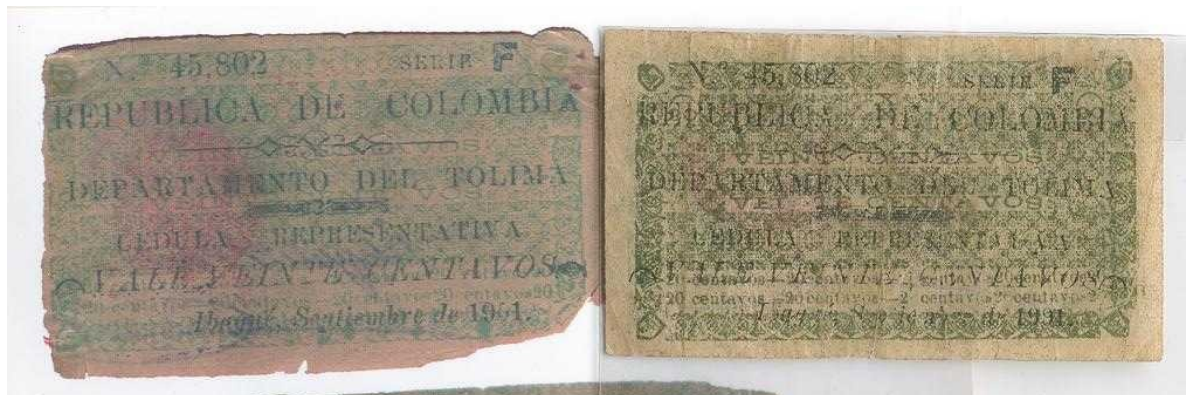 N.º 45,802 SERIE F
REPUBLICA DE COLOMBIA
DEPARTAMENTO DEL TOLIMA
CEDULA REPRESENTATIVA
VALE VEINTE CENTAVOS
Ibagué, Septiembre de 1901.
N.º 45,802 SERIE F
REPUBLICA DE COLOMBIA
VEINTE CENTAVOS
DEPARTAMENTO DEL TOLIMA
VEINTE CENTAVOS
CEDULA REPRESENTATIVA
VALE VEINTE CENTAVOS
20 centavos—20 centavos—2 centavos
de 1901.